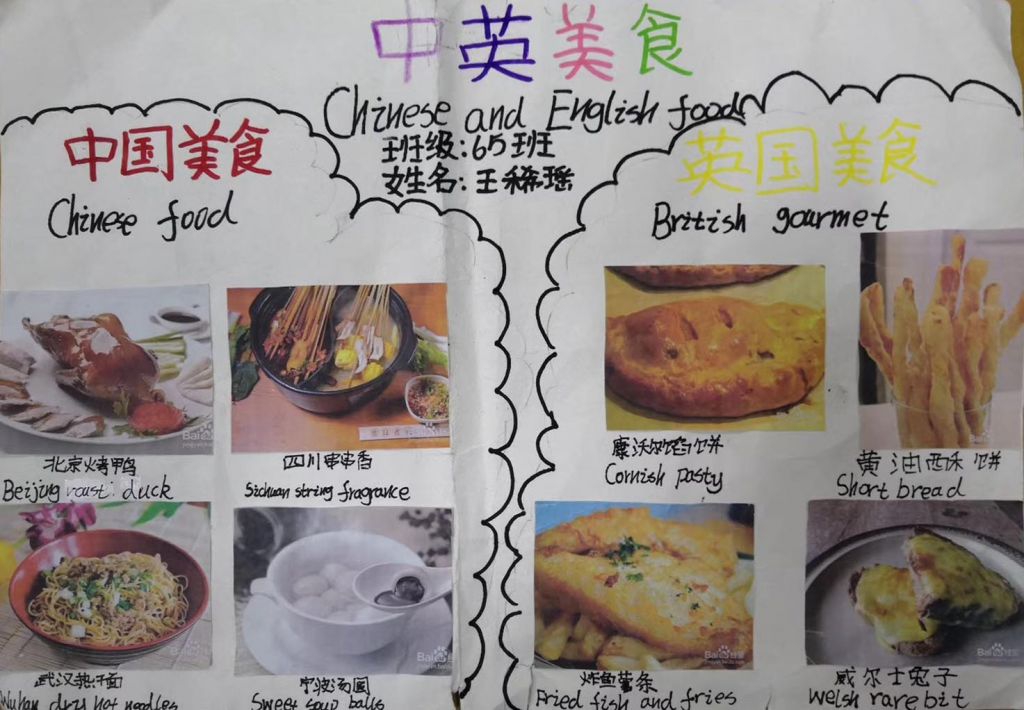 中英美食
Chinese and English food
班级:65班
姓名:王稀瑶
中国美食
Chinese food
北京烤鸭
Beijing roast duck
四川串串香
Sichuan string fragrance
武汉热干面
Wuhan dry hot noodles
宁波汤圆
Sweet soup balls
英国美食
British gourmet
康沃尔馅饼
Cornish pasty
黄油酥饼
Short bread
炸鱼薯条
Fried fish and fries
威尔士兔子
Welsh rare bit